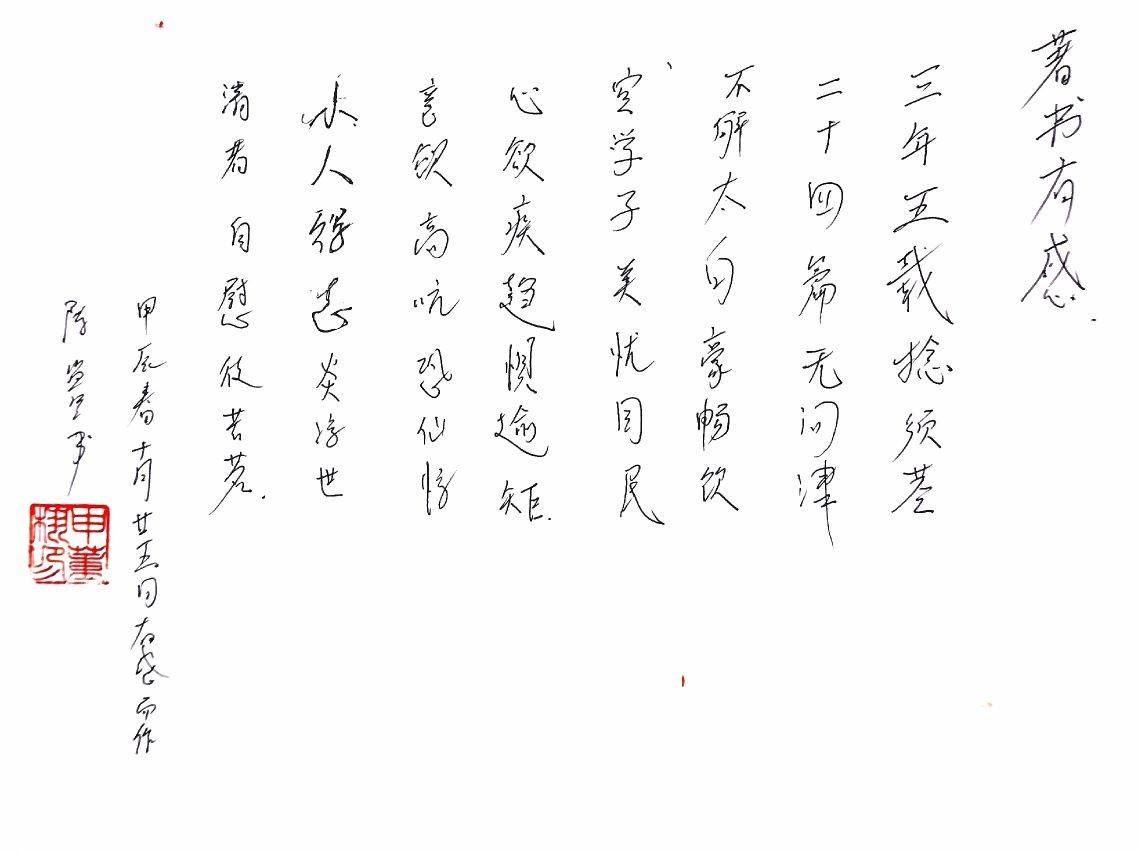 著书有感
三年五载捻须茎
二十四篇无问津
不解太白豪畅饮
实学子美忧国民
心欲疾趋惧逾矩
意欲高吭恐仙惊
人 炎凉世
清者自慰 苦茗
甲辰春十月廿五日有感而作
陈